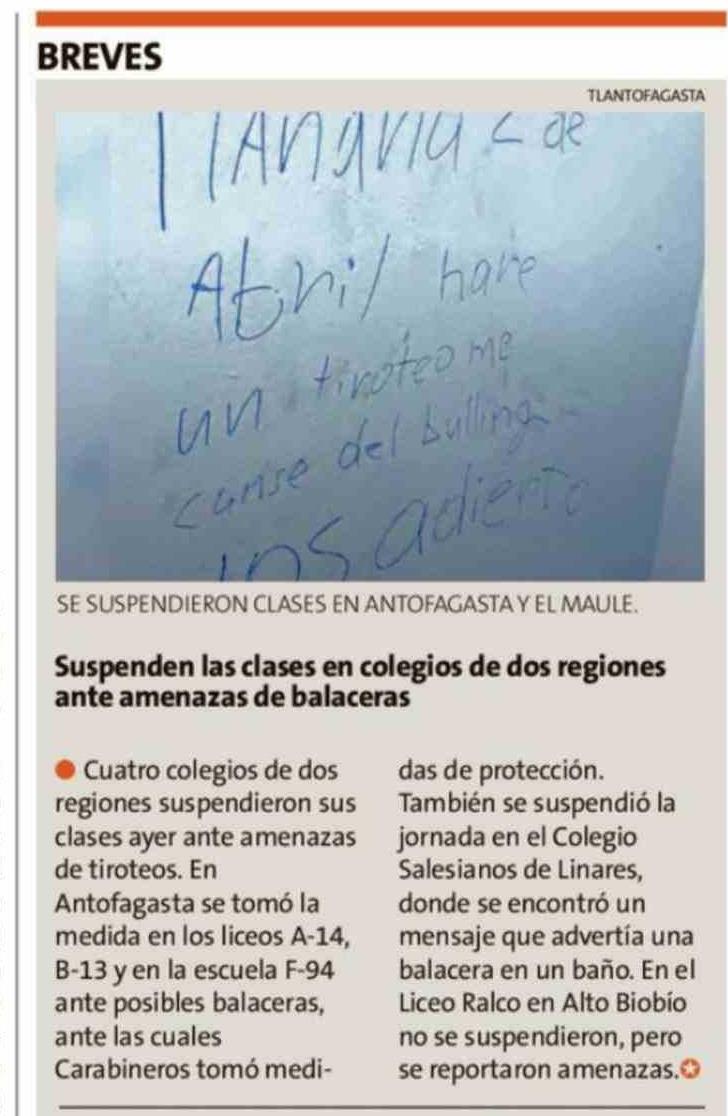 BREVES
TLANTOFAGASTA
de
Abril hare
un tiroteo me
canse del bulling
los adierto
SE SUSPENDIERON CLASES EN ANTOFAGASTA Y EL MAULE.
Suspenden las clases en colegios de dos regiones
ante amenazas de balaceras
Cuatro colegios de dos
regiones suspendieron sus
clases ayer ante amenazas
de tiroteos. En
Antofagasta se tomó la
medida en los liceos A-14,
B-13 y en la escuela F-94
ante posibles balaceras,
ante las cuales
Carabineros tomó medi-
das de protección.
También se suspendió la
jornada en el Colegio
Salesianos de Linares,
donde se encontró un
mensaje que advertía una
balacera en un baño. En el
Liceo Ralco en Alto Biobío
no se suspendieron, pero
se reportaron amenazas.